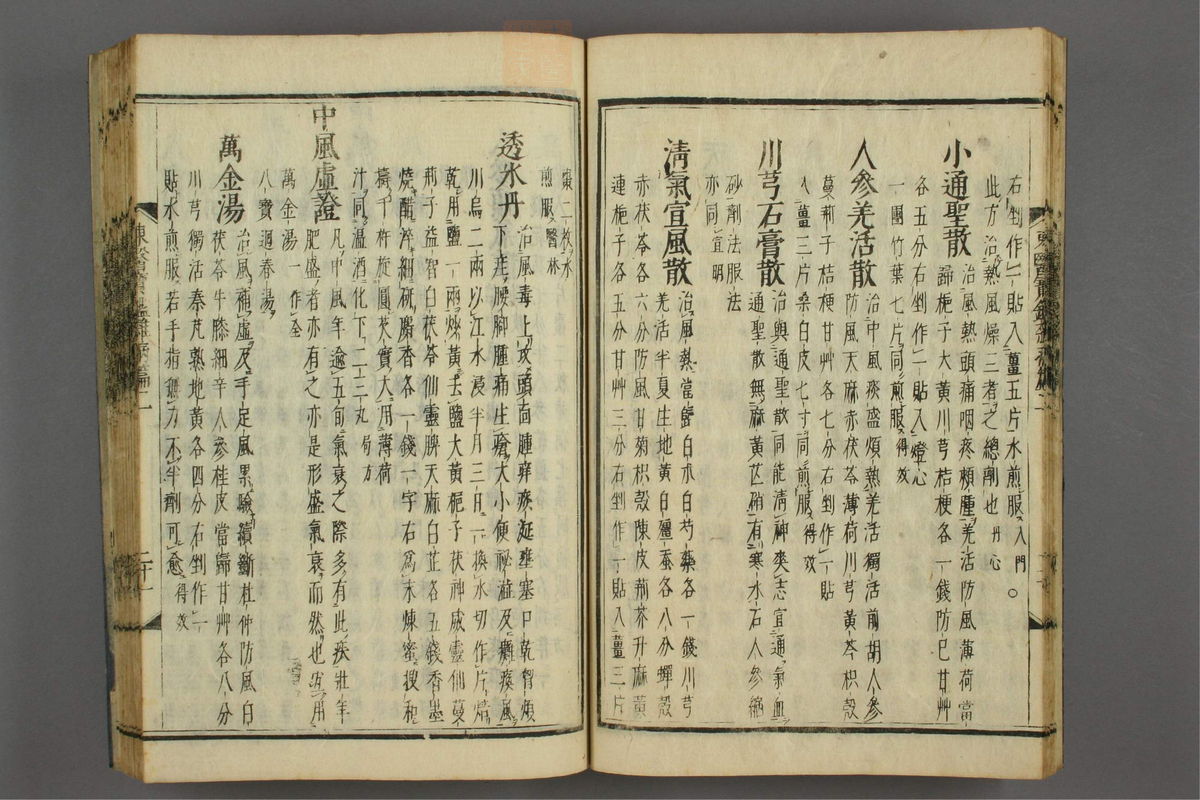 右剉作一貼入薑五片水煎服入門○
此方治熱風燥三者之總劑也丹心
小通聖散治風熱頭痛咽疼頰腫羌活防風薄荷當
歸梔子大黃川芎桔梗各一錢防已甘艸
各五分右剉作一貼入燈心
一團竹葉七片同煎服得效
人參羌活散治中風痰盛煩熱羌活獨活前胡人參
防風天麻赤茯苓薄荷川芎黃芩枳殼
蔓荊子桔梗甘艸各七分右剉作一貼
入薑三片桑白皮七寸同煎服得效
川芎石膏散治與通聖散同能淸神爽志宣通氣血
通聖散無麻黃芒硝有寒水石人參縮
砂劑法服法
亦同宣明
淸氣宣風散治風熱當歸白朮白芍藥各一錢川芎
羌活半夏生地黃白殭蚕各八分蟬殼
赤茯苓各六分防風甘菊枳殼陳皮荊芥升麻黃
連梔子各五分甘艸三分右剉作一貼入薑三片
棗二枚水
煎服醫林
透氷丹治風毒上攻頭面腫痒痰涎壅塞口乾智煩
下疰腰脚腫痛生瘡大小便秘澁及癱瘓風
川烏二兩以江水浸半月三日一換水切作片焙
乾用鹽一兩炒黃去鹽大黃梔子茯神威靈仙蔓
荊子益智白茯苓仙靈脾天麻白芷各五錢香墨
燒醋淬細硏麝香各一錢一字右爲末煉蜜搜和
擣千杵旋圓芡實大用薄荷
汁同溫酒化下二三丸局方
中風虛證凡中風年逾五旬氣衰之際多有此疾壯年
肥盛者亦有之亦是形盛氣衰而然也宜用
萬金湯一作全
八寶迴春湯
萬金湯治風補虛及手足風累驗續斷杜仲防風白
茯苓牛膝細辛人參桂皮當歸甘艸各八分
川芎獨活秦艽熟地黃各四分右剉作一
貼水煎服若手指無力不半劑可愈得效